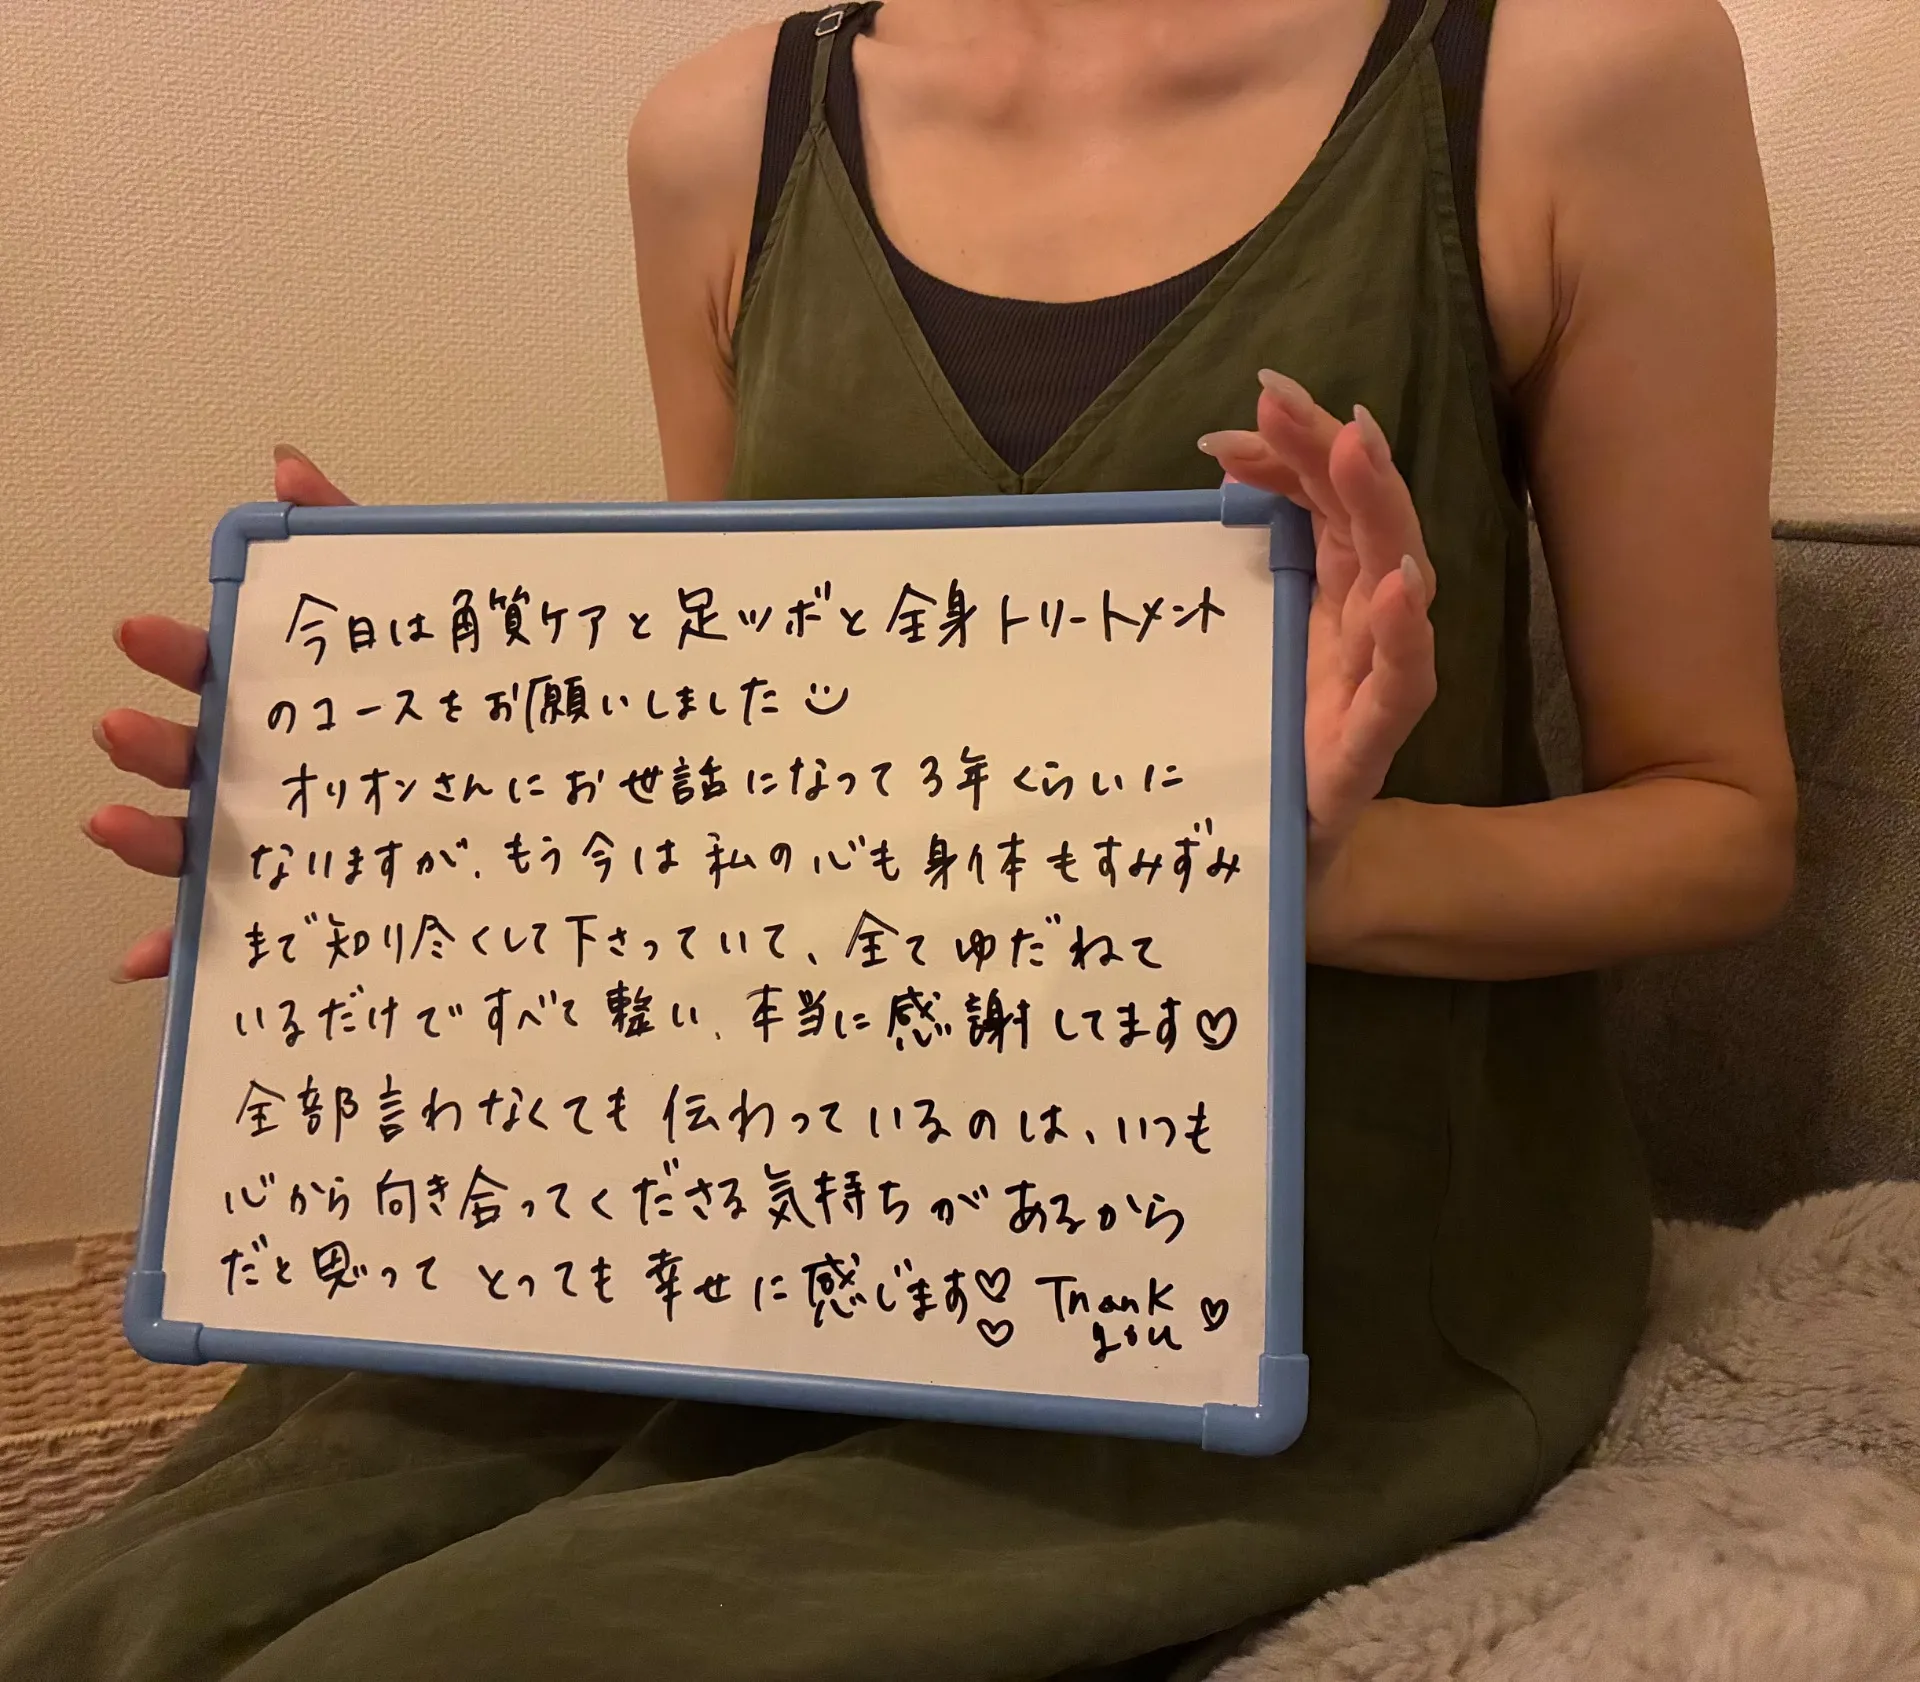 今日は角質ケアと足ツボと全身トリートメント
のコースをお願いしました
オリオンさんにお世話になって3年くらいに
なりますが、もう今は私の心も身体もすみずみ
まで知り尽くして下さっていて、全てゆだねて
いるだけですべて整い、本当に感謝してます♡
全部言わなくても伝わっているのは、いつも
心から向き合ってくださる気持ちがあるから
だと思ってとっても幸せに感じます♡♡ Thank you ♡